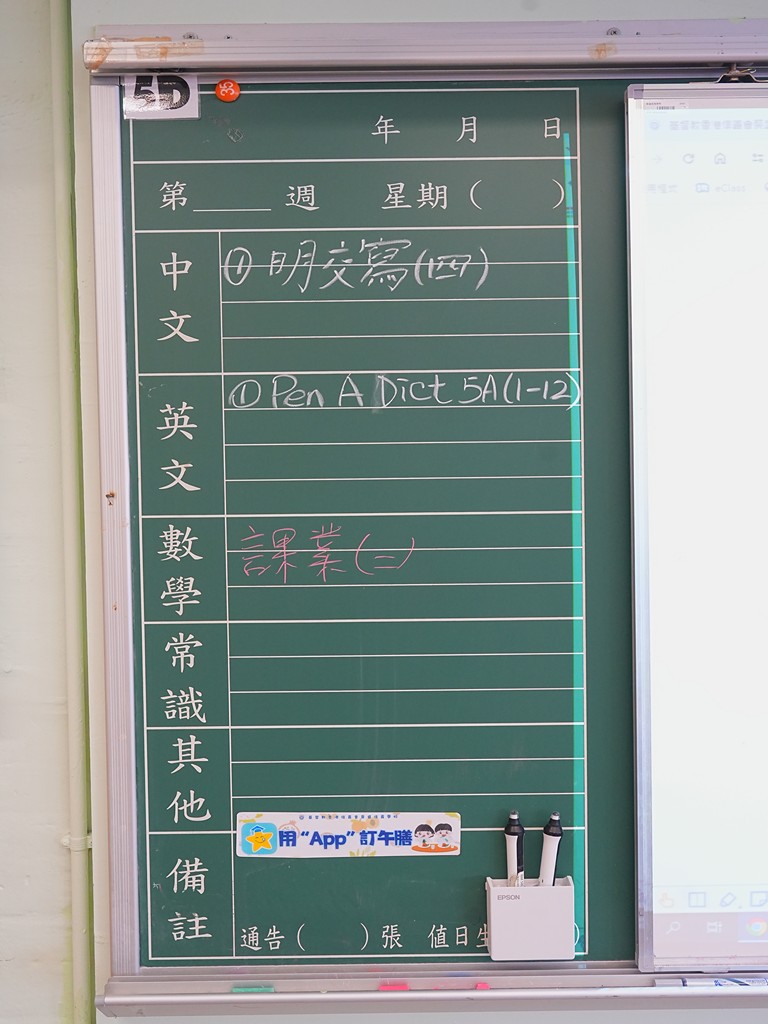 5D
35
年 月 日
第____週 星期( )
中文
① 明交寫(四)
英文
① Pen A Dict 5A(1-12)
數學
課業(二)
常識
其他
用“App”訂午膳
備註
通告( )張 值日生
EPSON
eClass